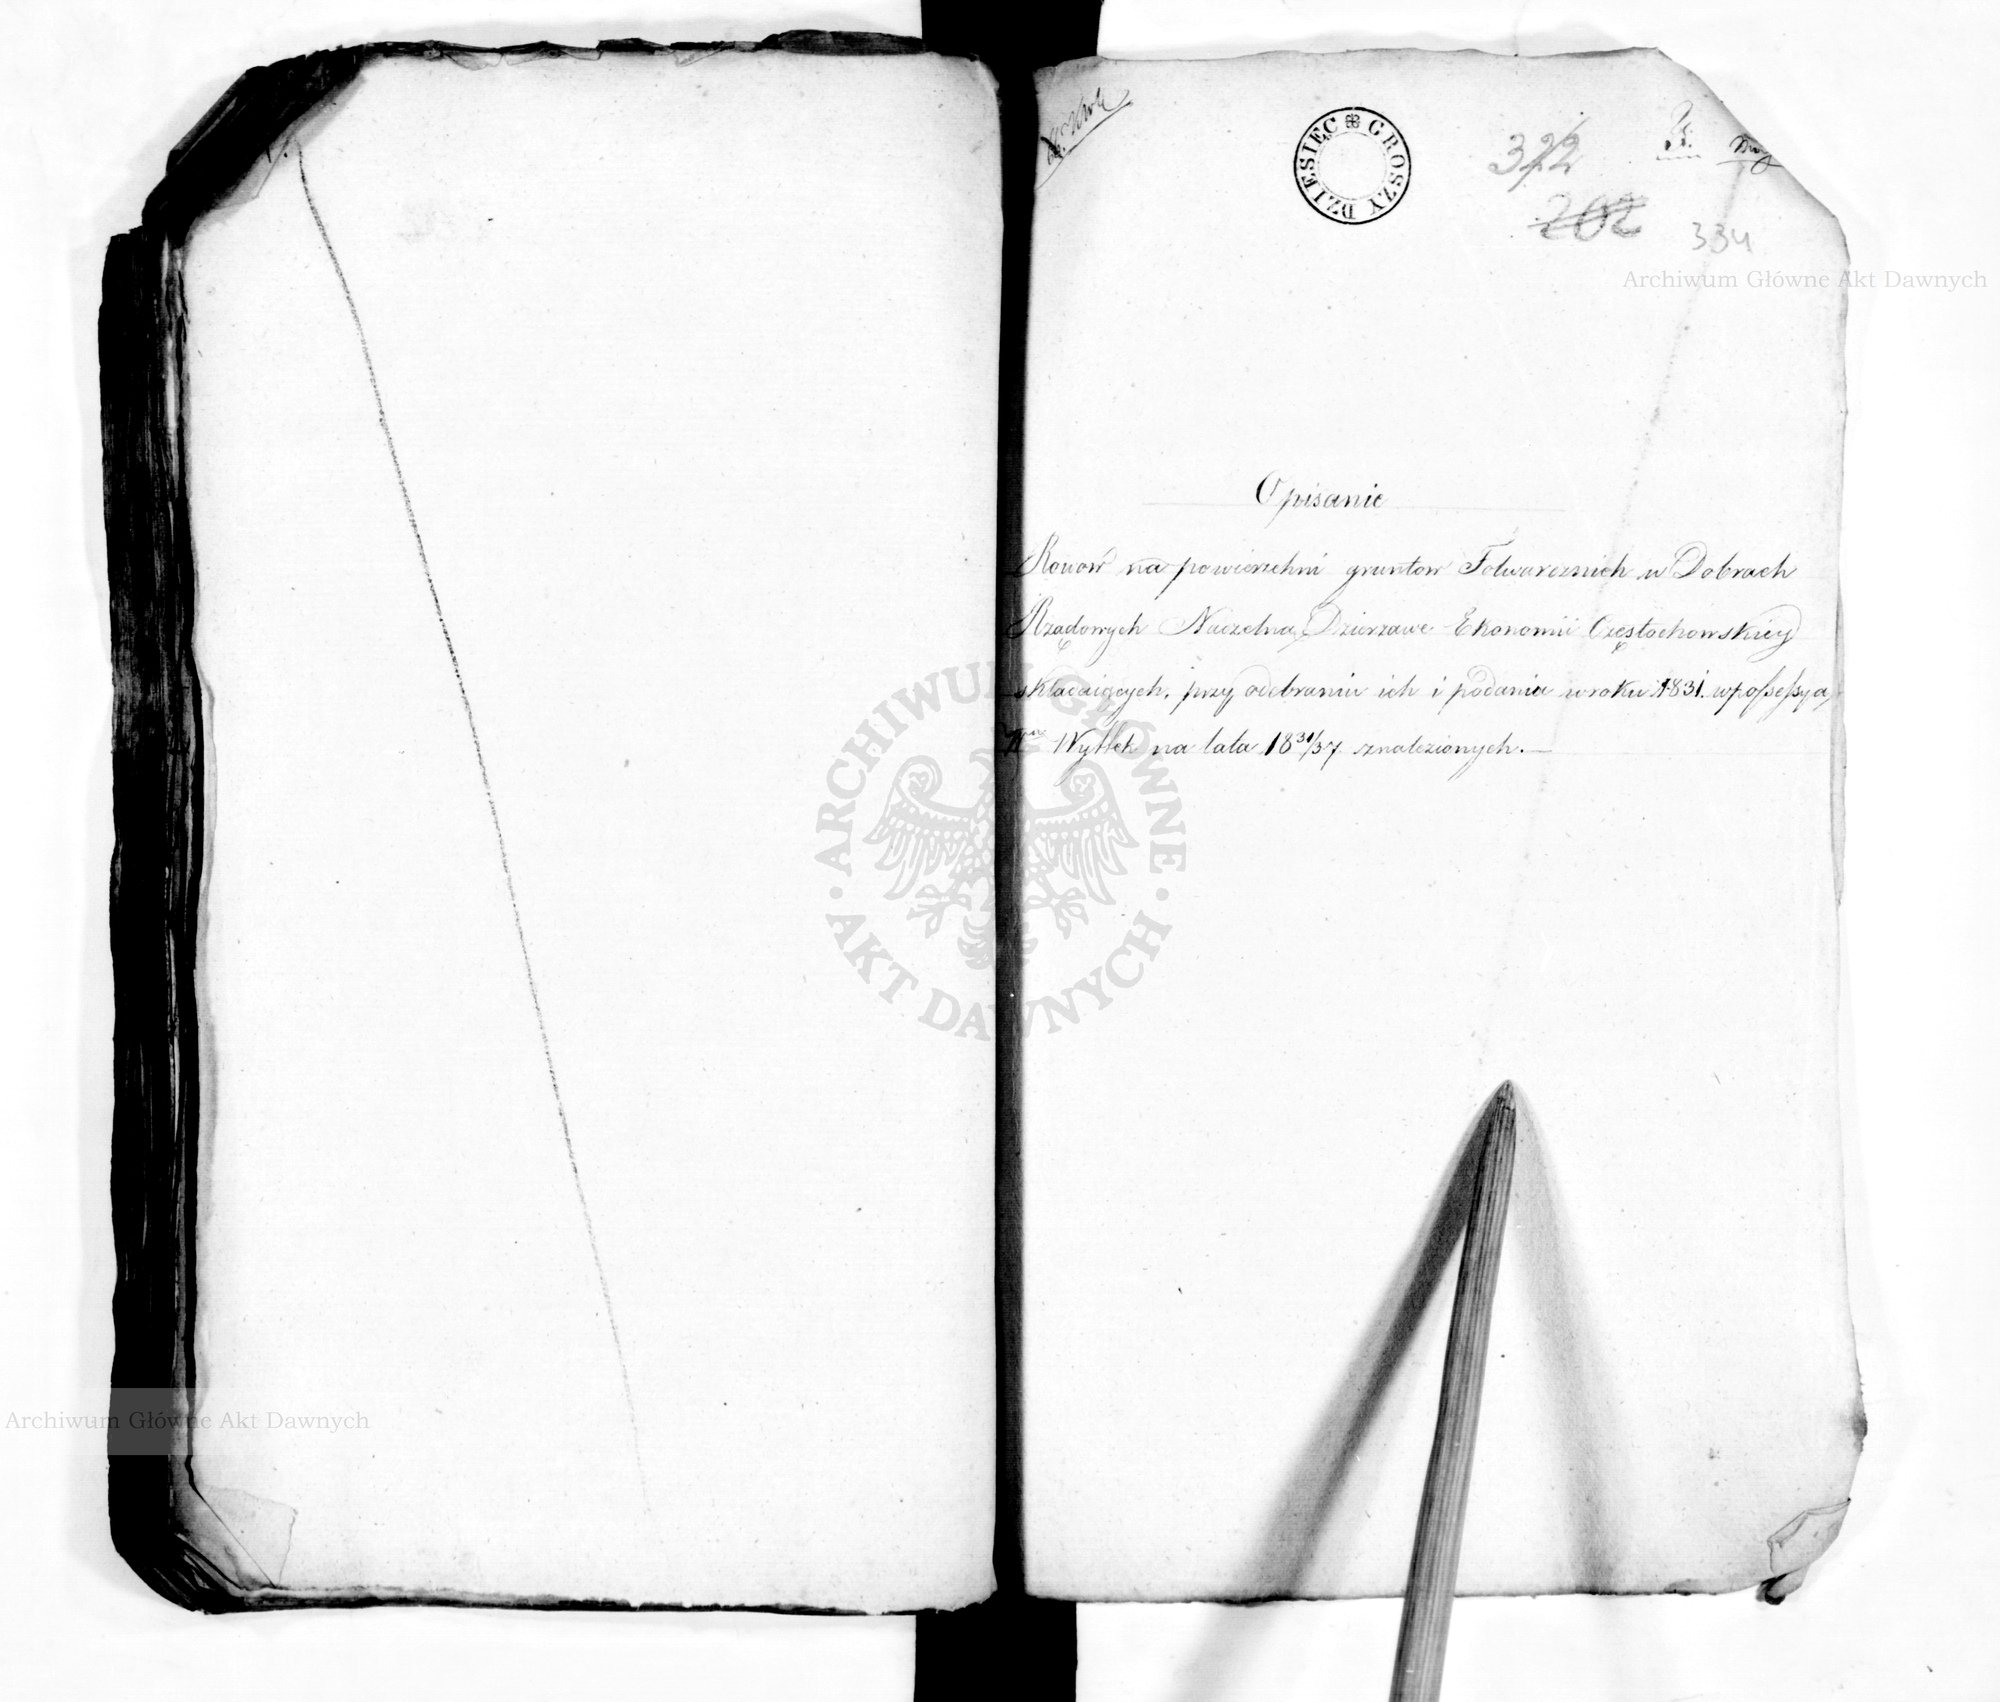 DZIESIEC GROSZY
322
202
334
Archiwum Główne Akt Dawnych
Opisanie
Rowow na powierzchni gruntow Folwarcznich w Dobrach
Rządowych Naczelną Dzierzawe Ekonomii Częstochowskiey
składaiących, przy odebraniu ich i podania w roku 1831. w possessyą
Wyttek na lata 18 31/37 znalezionych.—
ARCHIWUM GŁÓWNE
· AKT DAWNYCH ·
Archiwum Główne Akt Dawnych